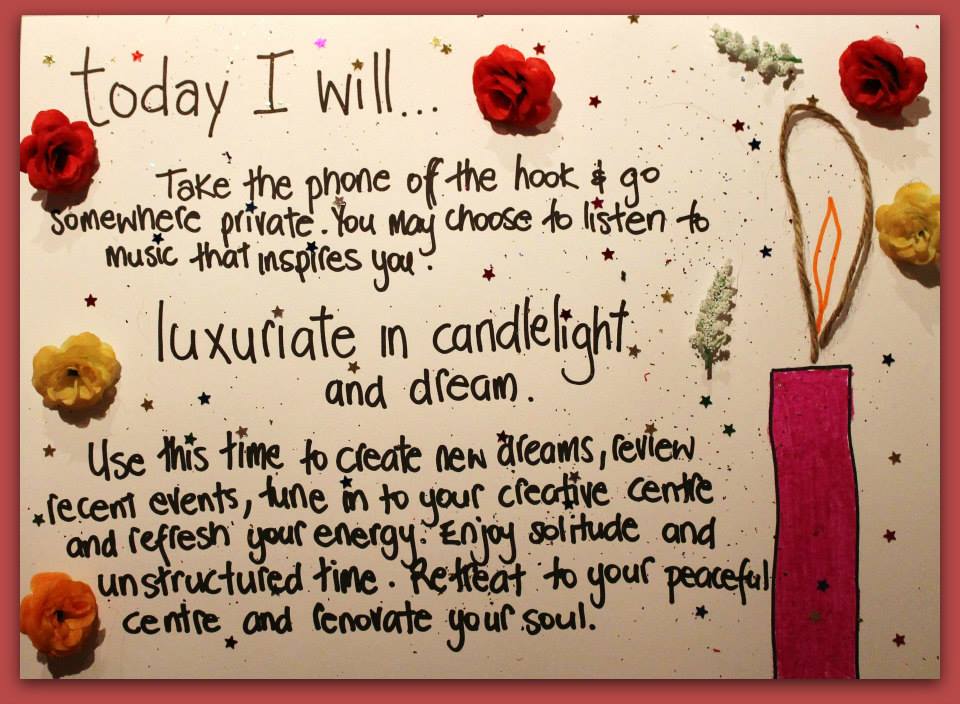 today I will...
Take the phone of the hook & go
somewhere private. You may choose to listen to
music that inspires you.
luxuriate in candlelight
and dream.
Use this time to create new dreams, review
recent events, tune in to your creative centre
and refresh your energy. Enjoy solitude and
unstructured time. Retreat to your peaceful
centre and renovate your soul.